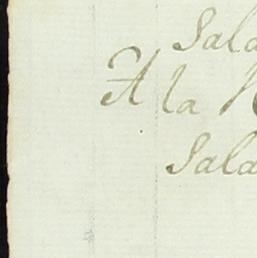 Sala
A la
Sala